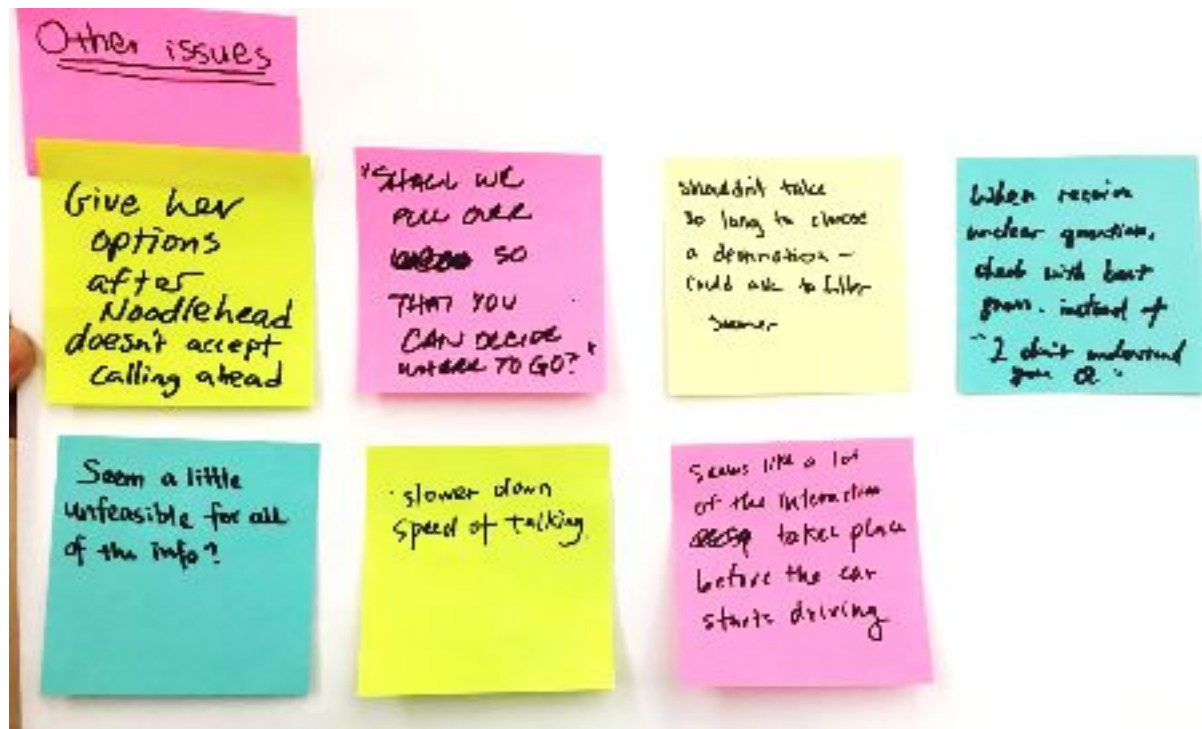 Other issues
Give her
options
after
Noodlehead
doesn't accept
calling ahead
"SHALL WE
PULL OVER
SO
THAT YOU
CAN DECIDE
WHERE TO GO?"
shouldn't take
so long to choose
a destination –
could ask to filter
sooner
When receive
unclear question,
check with best
instead of
"I don't understand
you
Seem a little
unfeasible for all
of the info?
slower down
speed of talking
Seems like a lot
of the interaction
takes place
before the car
starts driving